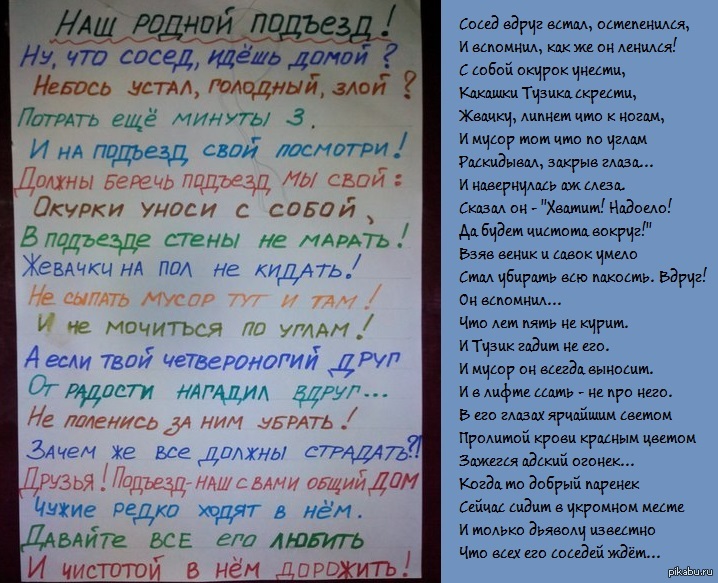 Наш родной подъезд!
Ну, что сосед, идёшь домой?
Небось устал, голодный, злой?
Потрать ещё минуты 3.
И на подъезд свой посмотри!
Должны беречь подъезд мы свой:
Окурки уноси с собой,
В подъезде стены не марать!
Жевачки на пол не кидать!
Не сыпать мусор тут и там!
И не мочиться по углам!
А если твой четвероногий друг
От радости нагадил вдруг...
Не поленись за ним убрать!
Зачем же все должны страдать?!
Друзья! Подъезд-наш с вами общий дом
Чужие редко ходят в нём.
Давайте все его любить
И чистотой в нём дорожить!
Сосед вдруг встал, остепенился,
И вспомнил, как же он ленился!
С собой окурок унести,
Какашки Тузика скрести,
Жвачку, липнет что к ногам,
И мусор тот что по углам
Раскидывал, закрыв глаза...
И навернулась аж слеза.
Сказал он - "Хватит! Надоело!
Да будет чистота вокруг!"
Взяв веник и савок умело
Стал убирать всю пакость. Вдруг!
Он вспомнил...
Что лет пять не курит.
И Тузик гадит не его.
И мусор он всегда выносит.
И в лифте ссать - не про него.
В его глазах ярчайшим светом
Пролитой крови красным цветом
Зажегся адский огонек...
Когда то добрый паренек
Сейчас сидит в укромном месте
И только дьяволу известно
Что всех его соседей ждёт...
pikabu.ru